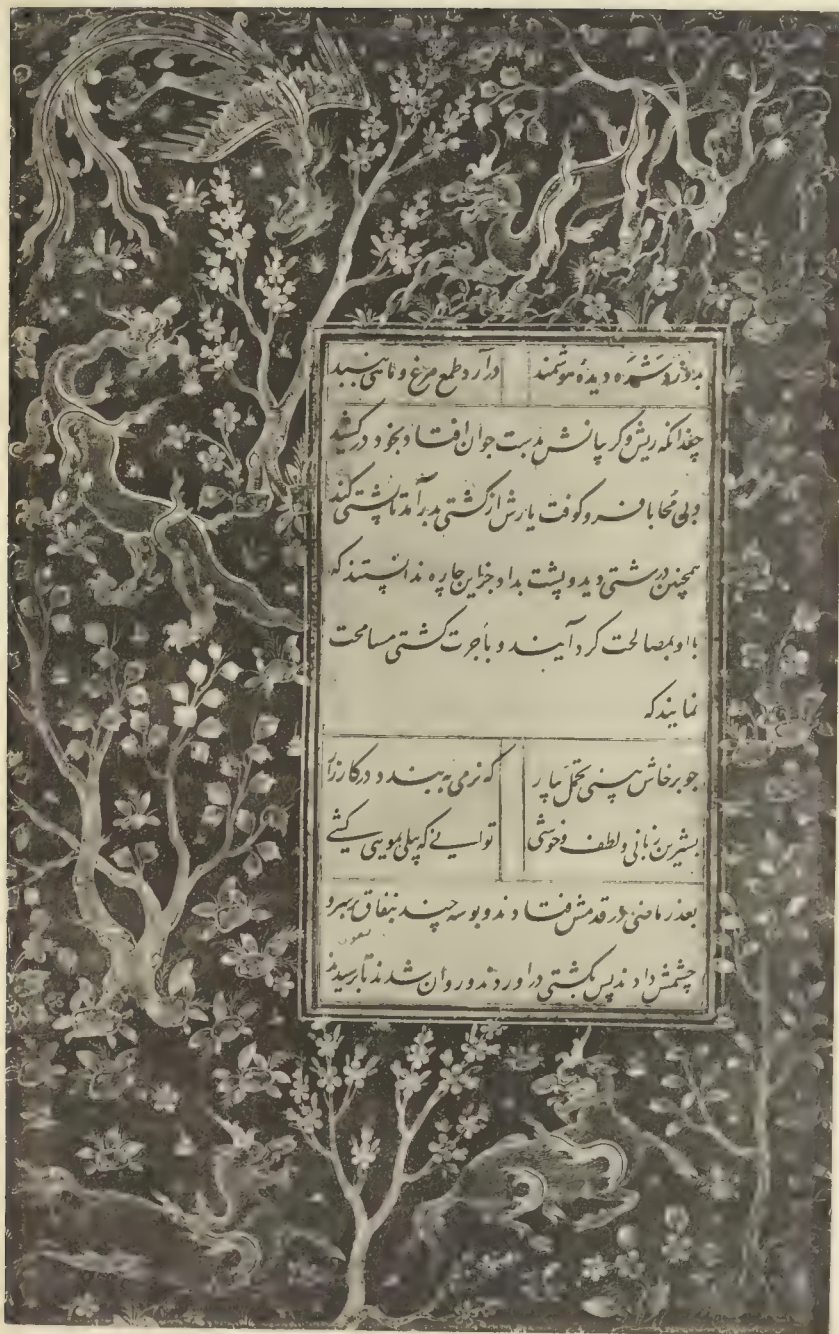 بدوزد شره دیده هوشمند درآرد طمع مرغ و ماهی ببند
چندانکه ریش و گریبانش بدست جوان افتاد بخود درکشید
و بی محابا فرو کوفت یارش از کشتی بدر آمد تا پشتی کند
همچنین درشتی دید و پشت بداد جز این چاره ندانستند که
با او بمصالحت گرد آیند و باجرت کشتی مسامحت
نمایند که
چو پرخاش بینی تحمل بیار که نرمی به بندد در کارزار
بشیرین زبانی و لطف و خوشی توانی که پیلی بمویی کشی
بعذر ماضی در قدمش فتادند و بوسه چند بنفاق بر سر و
چشمش دادند پس بکشتی در آوردند و روان شدند تا برسیدند